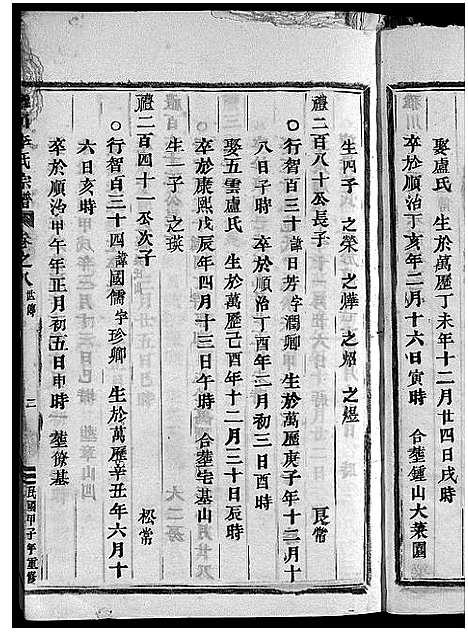 娶盧氏　生於萬歷丁未年十二月廿四日戌時
卒於順治丁亥年二月十六日寅時　合塟鍾山大菜園
生四子　之榮　之燁　之炤　之煜
禮二百八十公長子　良常
○行智百三十諱日芳字潤卿　生於萬歷庚子年十二月十
八日子時　卒於順治丁酉年二月初三日酉時
娶五雲盧氏　生於萬歷己酉年十二月三十日辰時
卒於康熙戊辰年四月十三日午時　合塟宅基山
生一子　之琰
禮二百四十一公次子　松常
○行智百三十四諱國儒字珍卿　生於萬歷辛丑年六月十
六日亥時
卒於順治甲午年正月初五日申時　塟
李氏宗譜　卷之八　世傳　三　民國甲子年重修